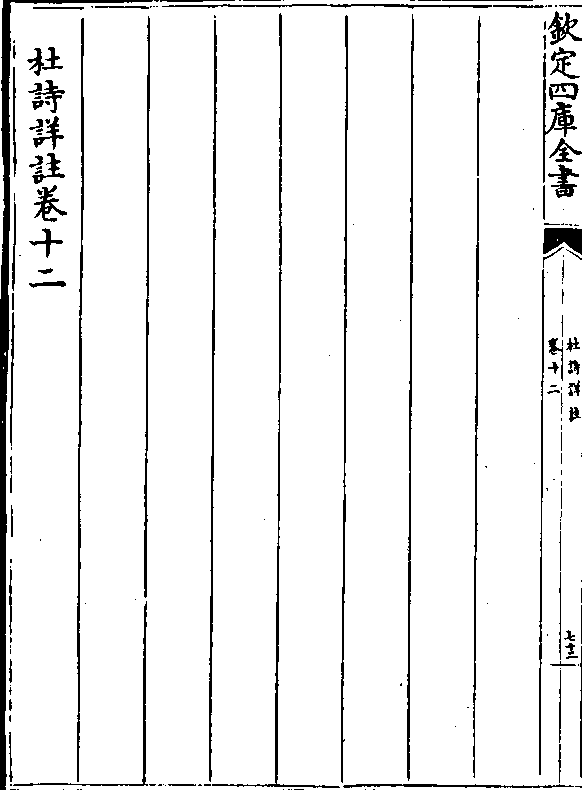 欽定四庫全書
杜詩詳註
卷十二
七十三
杜詩詳註卷十二